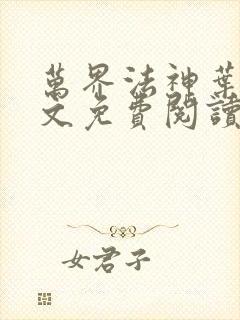 萬界法神葉
文免費閱讀
女君子